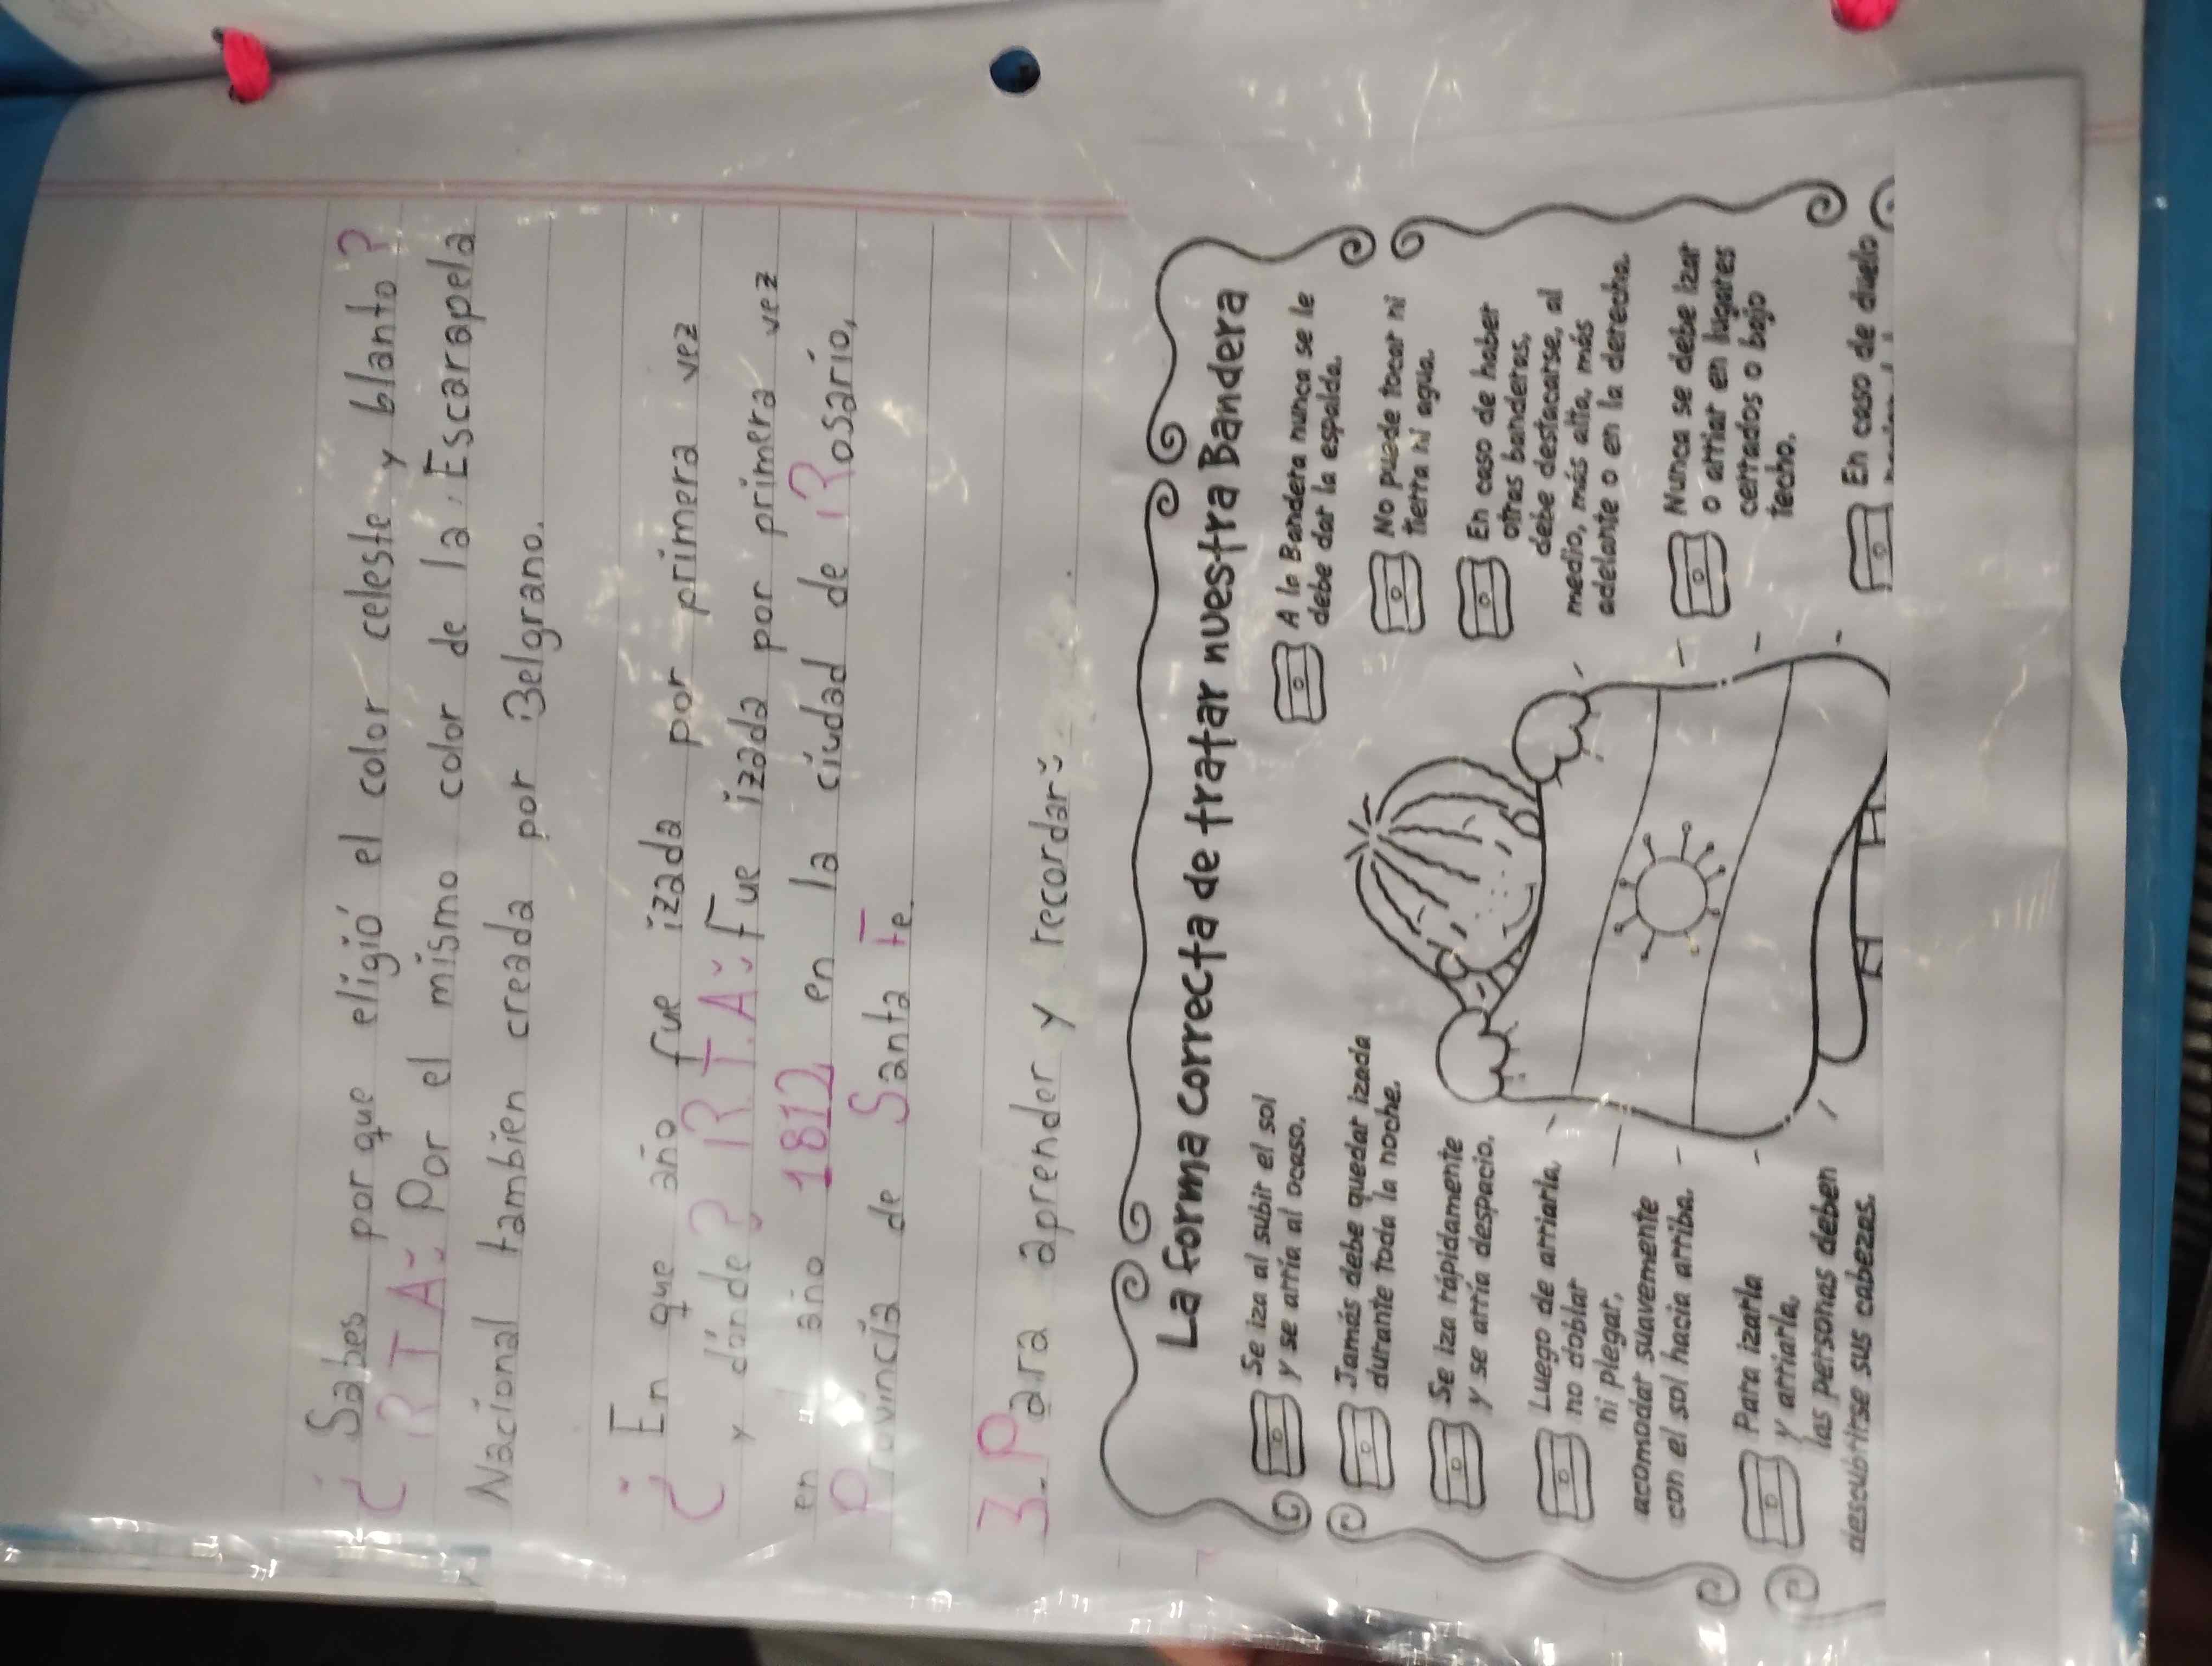 ¿Sabes por que eligió el color celeste y blanto?
RTA: Por el mismo color de la Escarapela
Nacional tambien creada por Belgrano.
¿En que año fue izada por primera vez
y dónde? RTA: Fue izada por primera vez
en año 1812 en la ciudad de Rosario,
Provincia de Santa Fe.
3-Para aprender y recordar:
La forma correcta de tratar nuestra Bandera
Se iza al subir el sol
y se arría al ocaso.
Jamás debe quedar izada
durante toda la noche.
Se iza rápidamente
y se arría despacio.
Luego de arriarla,
no doblar
ni plegar,
acomodar suavemente
con el sol hacia arriba.
Para izarla
y arriarla,
las personas deben
descubrirse sus cabezas.
A la Bandera nunca se le
debe dar la espalda.
No puede tocar ni
tierra ni agua.
En caso de haber
otras banderas,
debe destacarse, al
medio, más alta, más
adelante o en la derecha.
Nunca se debe izar
o arriar en lugares
cerrados o bajo
techo.
En caso de duelo